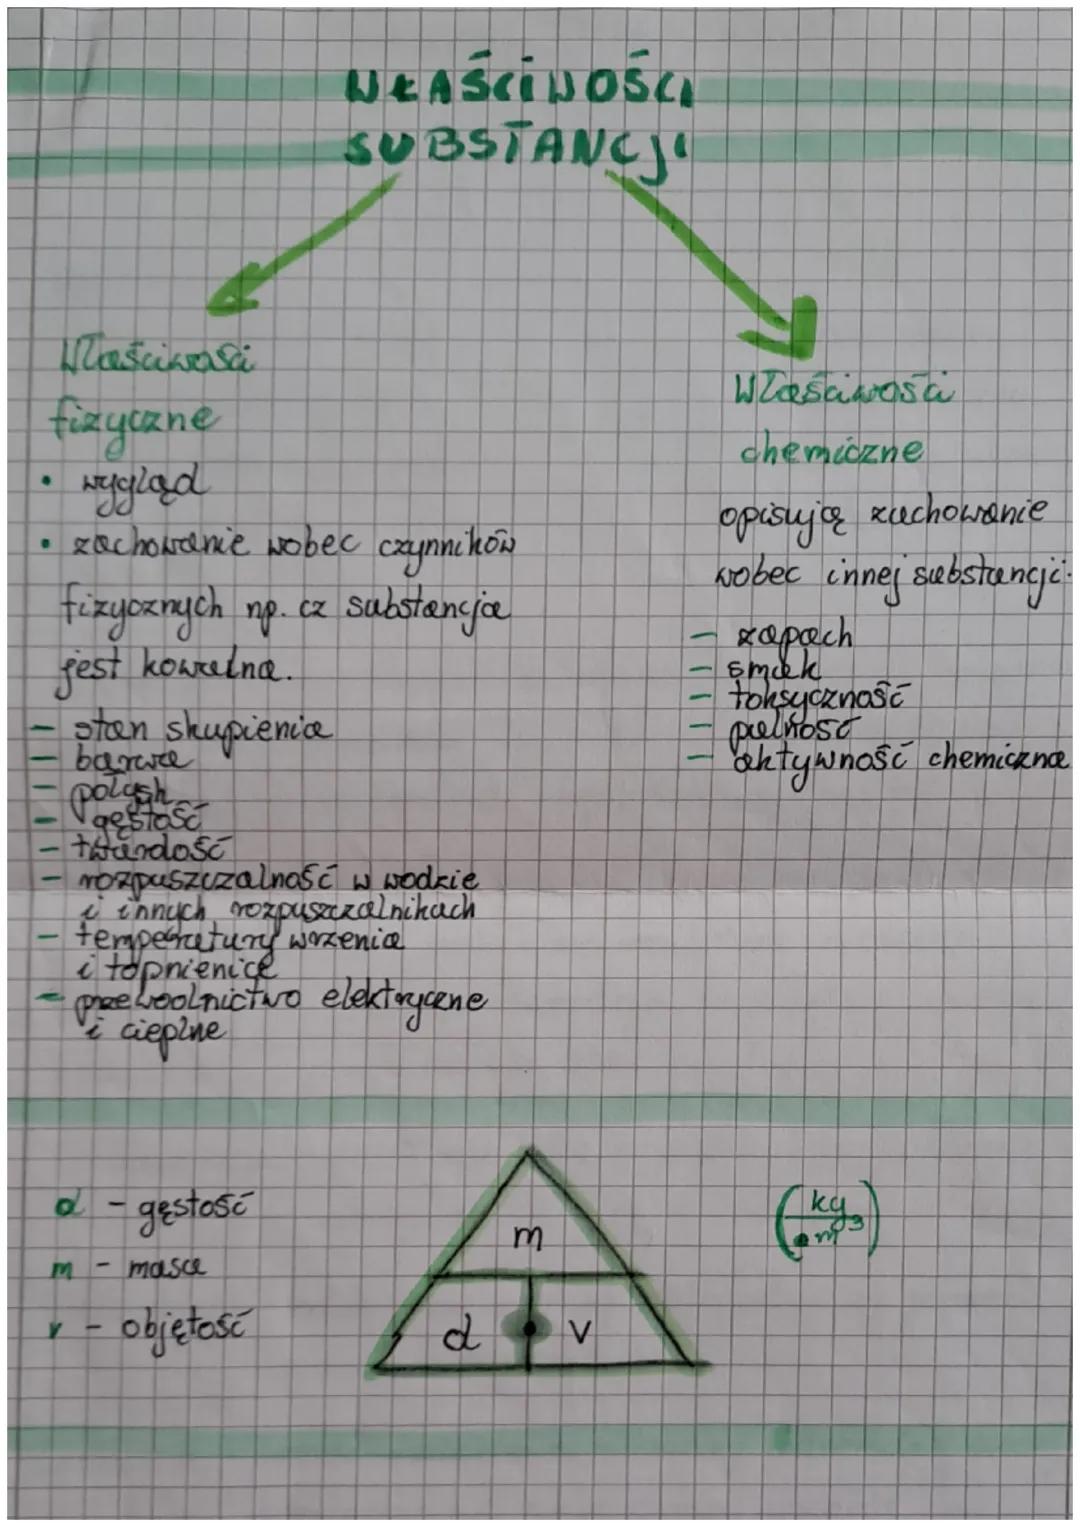 WŁAŚCIWOŚCI
SUBSTANCJI
Właściwości
fizyczne
• wygląd
• zachowanie wobec czynników
fizycznych np. cz substancja
jest kowalna.
- stan skupienia
- barwa
- połysk
- gęstość
- twardość
- rozpuszczalność w wodzie
i innych rozpuszczalnikach
- temperatury wrzenia
i topnienia
- przewodnictwo elektryczne
i cieplne
Właściwości
chemiczne
opisują zachowanie
wobec innej substancji.
- zapach
- smak
- toksyczność
- palność
- aktywność chemiczna
d - gęstość
m - masa
v - objętość
m
d • v
(kg
m³)